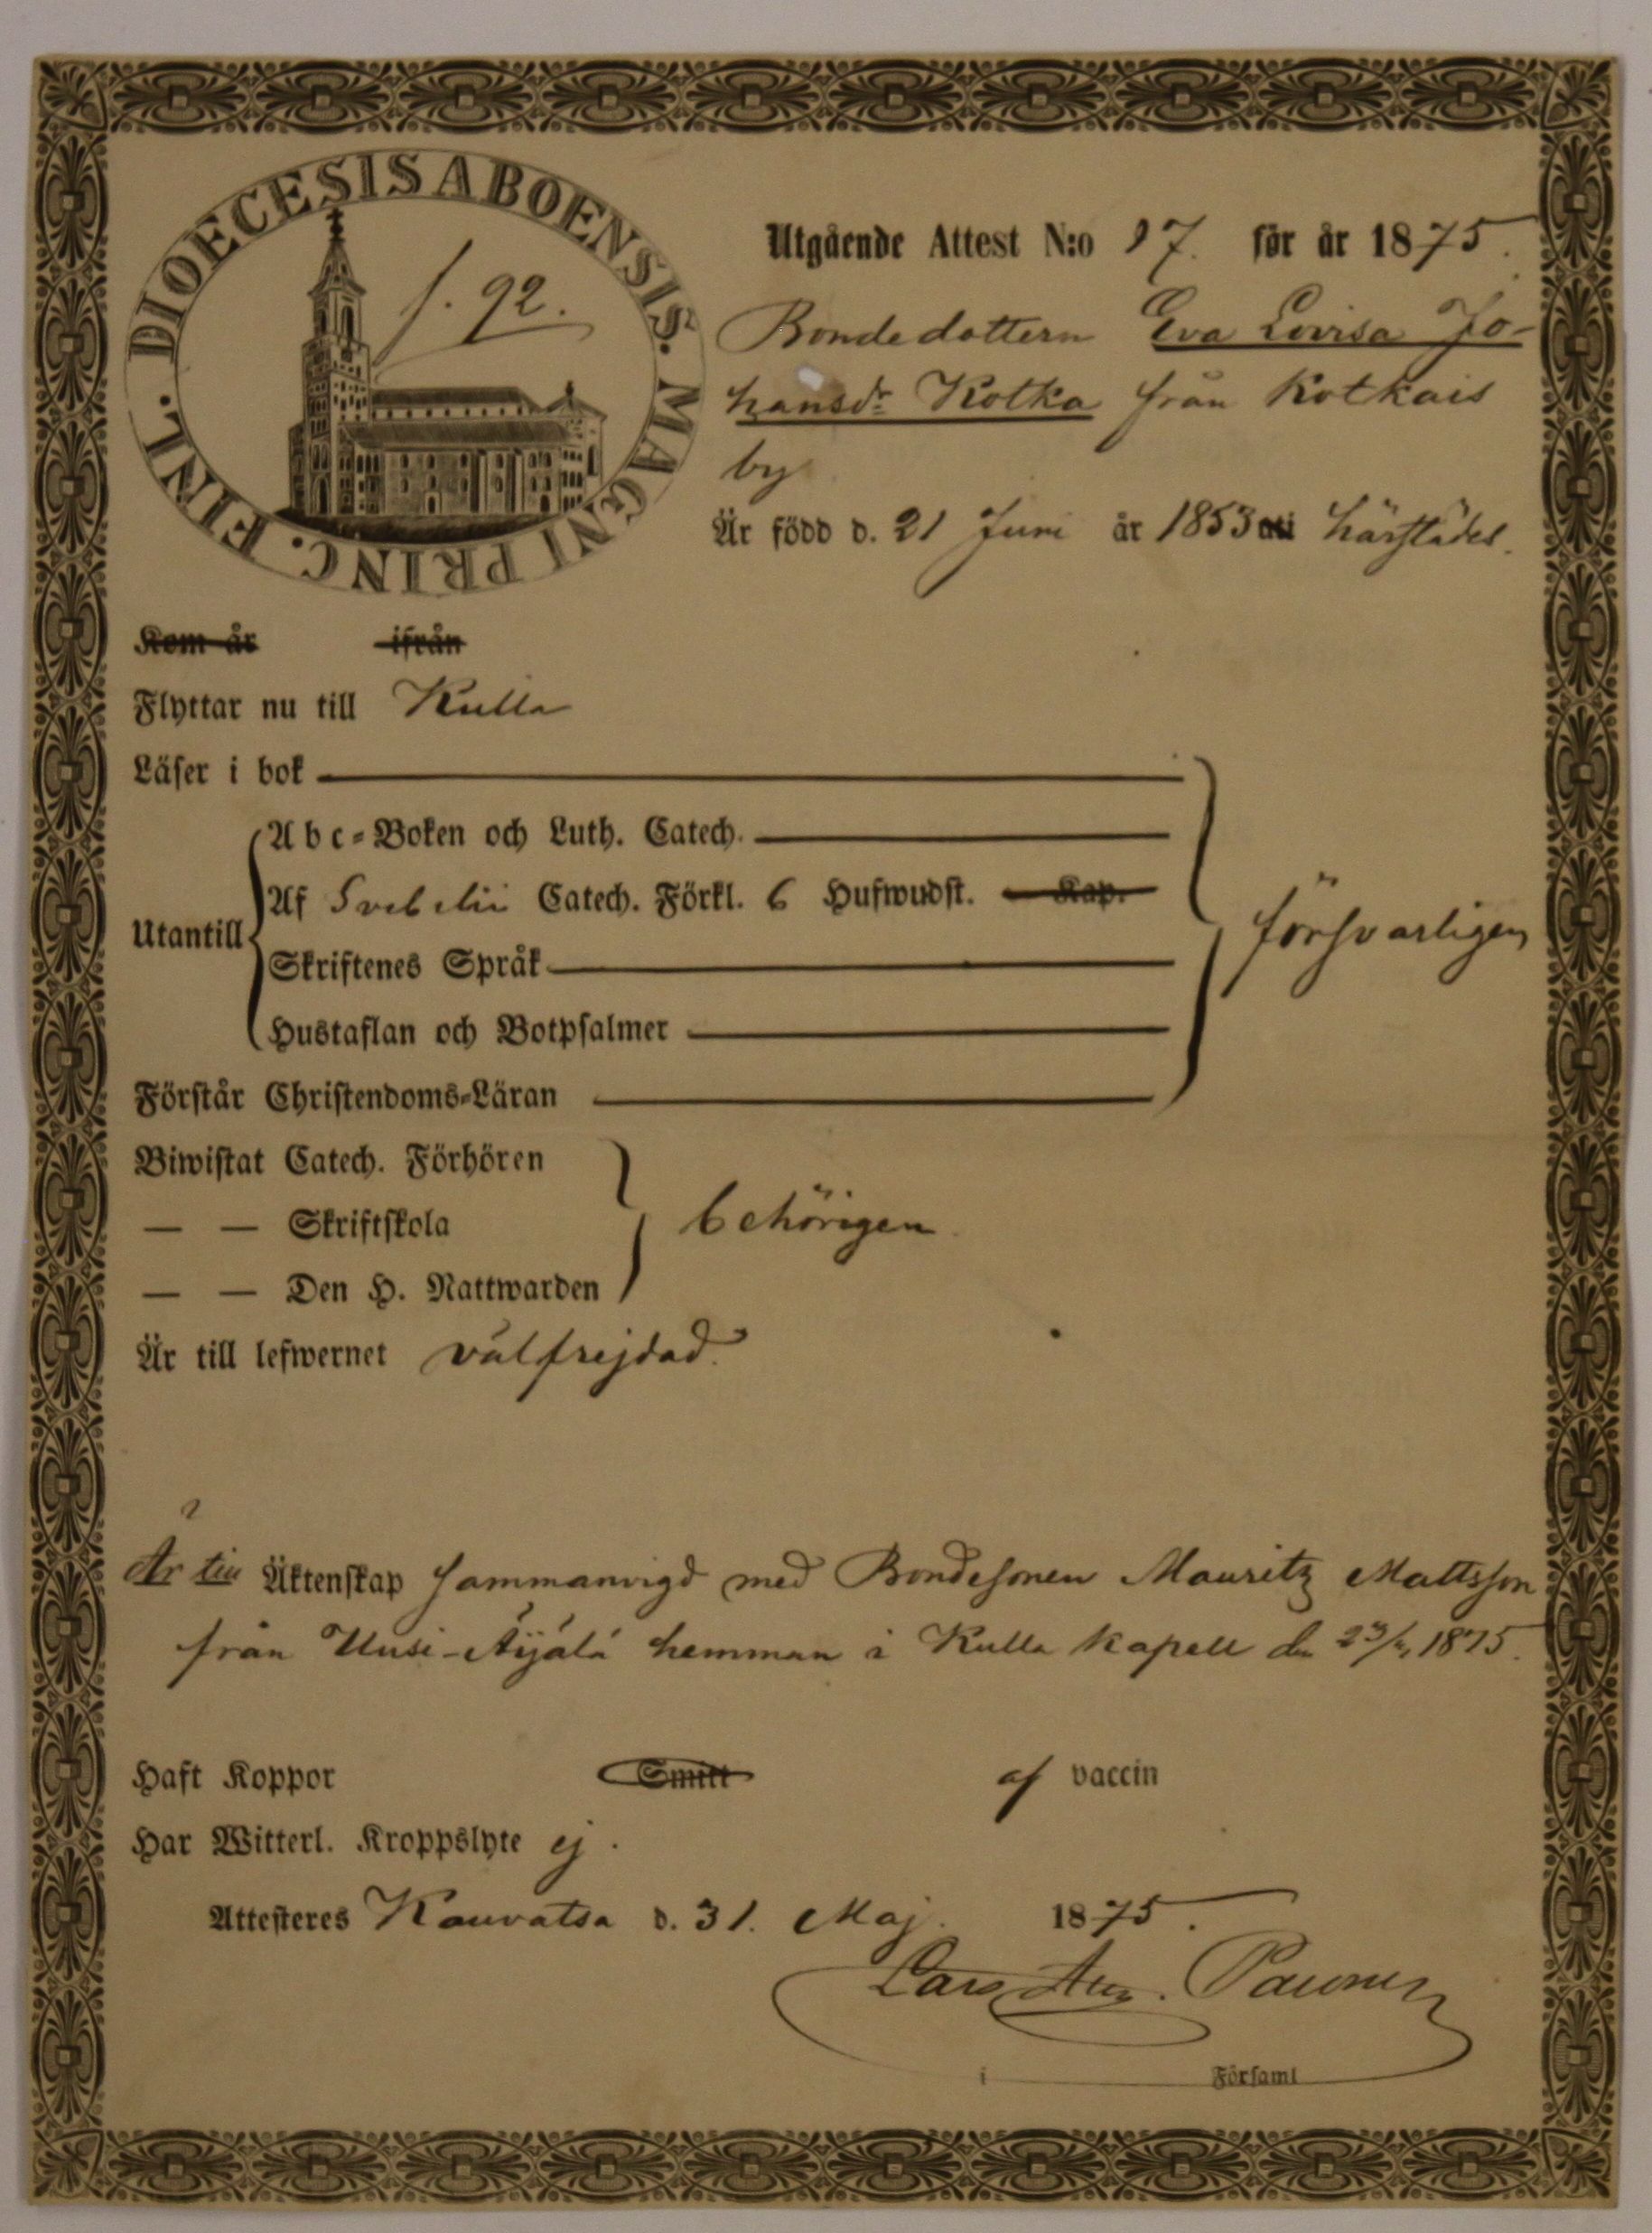 DIOECESIS ABOENSIS. MAGNI PRINC. FINL.
f. 92.
Utgående Attest N:o 17. för år 1875.
Bondedottern Eva Lovisa Jo-
hansdr Kotka från Kotkais
by
Är född d. 21 Juni år 1853 uti härstädes.
Kom år ifrån
Flyttar nu till Kulla
Läser i bok
Abc-Boken och Luth. Catech.
Utantill
Af Svebelii Catech. Förkl. 6 Hufwudst. Kap.
försvarligen
Skriftenes Språk
Hustaflan och Botpsalmer
Förstår Christendoms-Läran
Biwistat Catech. Förhören
— — Skriftskola behörigen
— — Den H. Nattwarden
Är till lefwernet välfrejdad.
Är till Äktenskap sammanvigd med Bondesonen Mauritz Mattsson
från Uusi-Äijälä hemman i Kulla kapell den 1875.
Haft Koppor Smitt af vaccin
Har Witterl. Kroppslyte ej.
Attesteres Kauvatsa d. 31. Maj. 1875.
Lars Aug.
i Församl